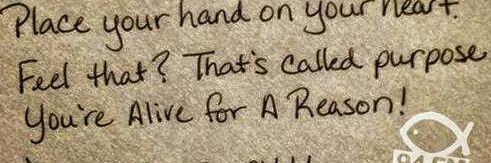 Place your hand on your heart.
Feel that? That's called purpose
You're Alive for A Reason!